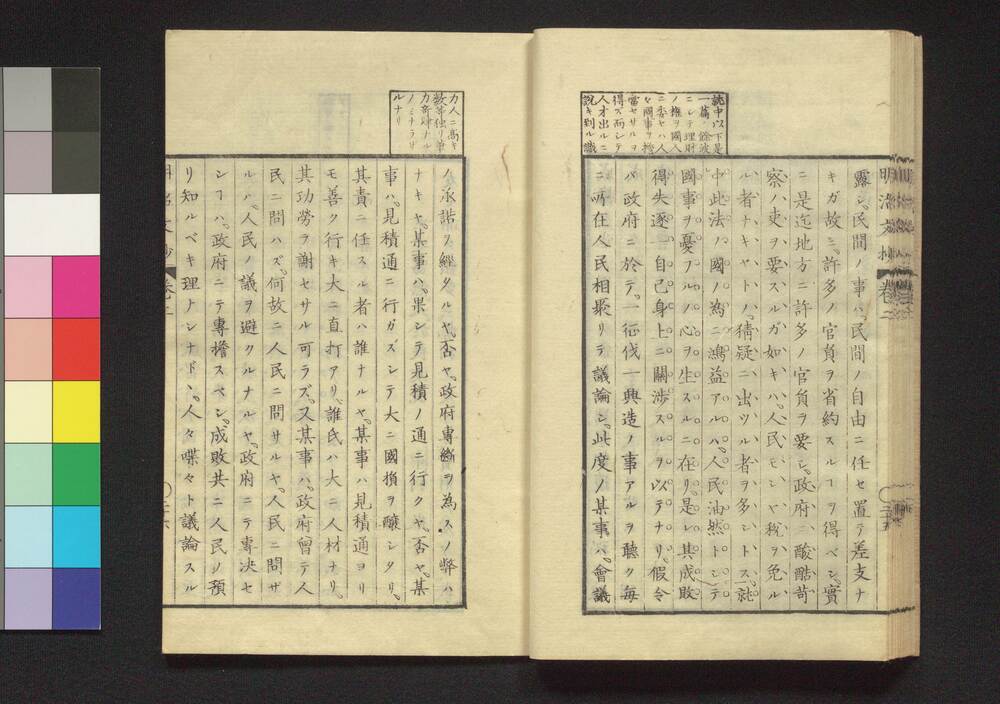 明治文抄 卷二
露シ、民間ノ事ハ、民間ノ自由ニ任セ置テ差支ナ
キガ故ニ、許多ノ官負ヲ省約スルヿヲ得ベシ、實
ニ是迄地方ニ許多ノ官負ヲ要シ、政府ニ酸酷苛
察ノ吏ヲ要スルガ如キハ、人民モシヤ税ヲ免ル
ル者ナキヤトノ、猜疑ニ出ツル者ヲ多シトス、就
中此法ノ國ノ為ニ鴻益アルハ、人民油然トシテ
國事ヲ憂フルノ心ヲ生スルニ在リ、是レ其成敗
得失逐一自己身上ニ關渉スルヲ以テナリ、假令
バ政府ニ於テ、一征伐一興造ノ事アルヲ聽ク毎
ニ、所在人民相聚リテ議論シ、此度ノ某事ハ、會議
就中以下是
一篇ノ餘波
ニシテ理財
ノ權ヲ國人
ニ委セハ人
々國事ヲ擔
當セサルヲ
得ズ而シテ
人才出ルニ
説キ到ル識
ノ承諾ヲ經タルヤ、否ヤ、政府專斷ヲ為スノ弊ハ
ナキヤ、某事ハ、果シテ見積ノ通ニ行クヤ、否ヤ、某
事ハ、見積通ニ行ガズシテ大ニ國損ヲ釀シタリ、
其責ニ任スル者ハ誰ナルヤ、某事ハ見積通ヨリ
モ善ク行キ大ニ直打アリ、誰氏ハ大ニ人材ナリ、
其功勞ヲ謝セサル可ラズ、又某事ハ、政府曾テ人
民ニ問ハズ、何故ニ人民ニ問サルヤ、人民ニ問ザ
ルハ、人民ノ議ヲ避クルナルヤ、政府ニテ專决セ
シヿハ、政府ニテ專擔スベシ、成敗共ニ人民ノ預
リ知ルベキ理ナシナド、人々喋々ト議論スル
力人ニ高キ
數等独リ筆
力奇峭ナル
ノミナラサ
ルナリ
明治文抄 卷二